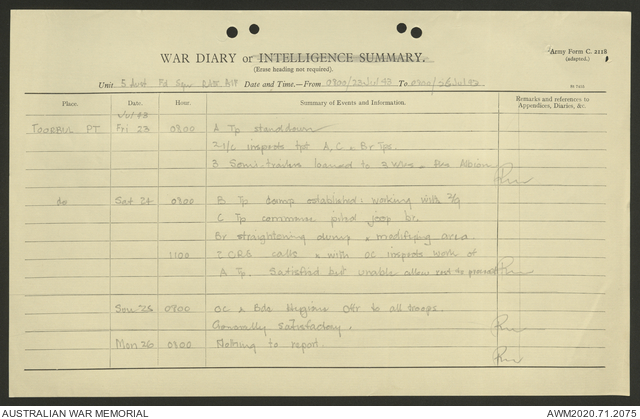 Army Form C. 2118
(adapted.)
WAR DIARY or INTELLIGENCE SUMMARY.
(Erase heading not required).
Unit 5 Aust Fd Sqn RAE AIF Date and Time—From 0800/23 Jul 43 To 0800/26 Jul 43
Place. Date. Hour. Summary of Events and Information. Remarks and references to Appendices, Diaries, &c.
Jul 43
TOORBUL PT Fri 23 0800 A Tp stand down
2 i/c inspects tpt A, C & Br Tps.
3 Semi trailers loaned to Albion
do Sat 24 0800 B Tp dump established: working with
C Tp commence br.
Br straightening dump & modifying area.
1100 CRE calls & with OC inspects work of
A Tp. Satisfied but unable allow
Sun 25 0800 OC & Bde Hygiene Offr to all troops.
Generally satisfactory.
Mon 26 0800 Nothing to report.
AUSTRALIAN WAR MEMORIAL AWM2020.71.2075